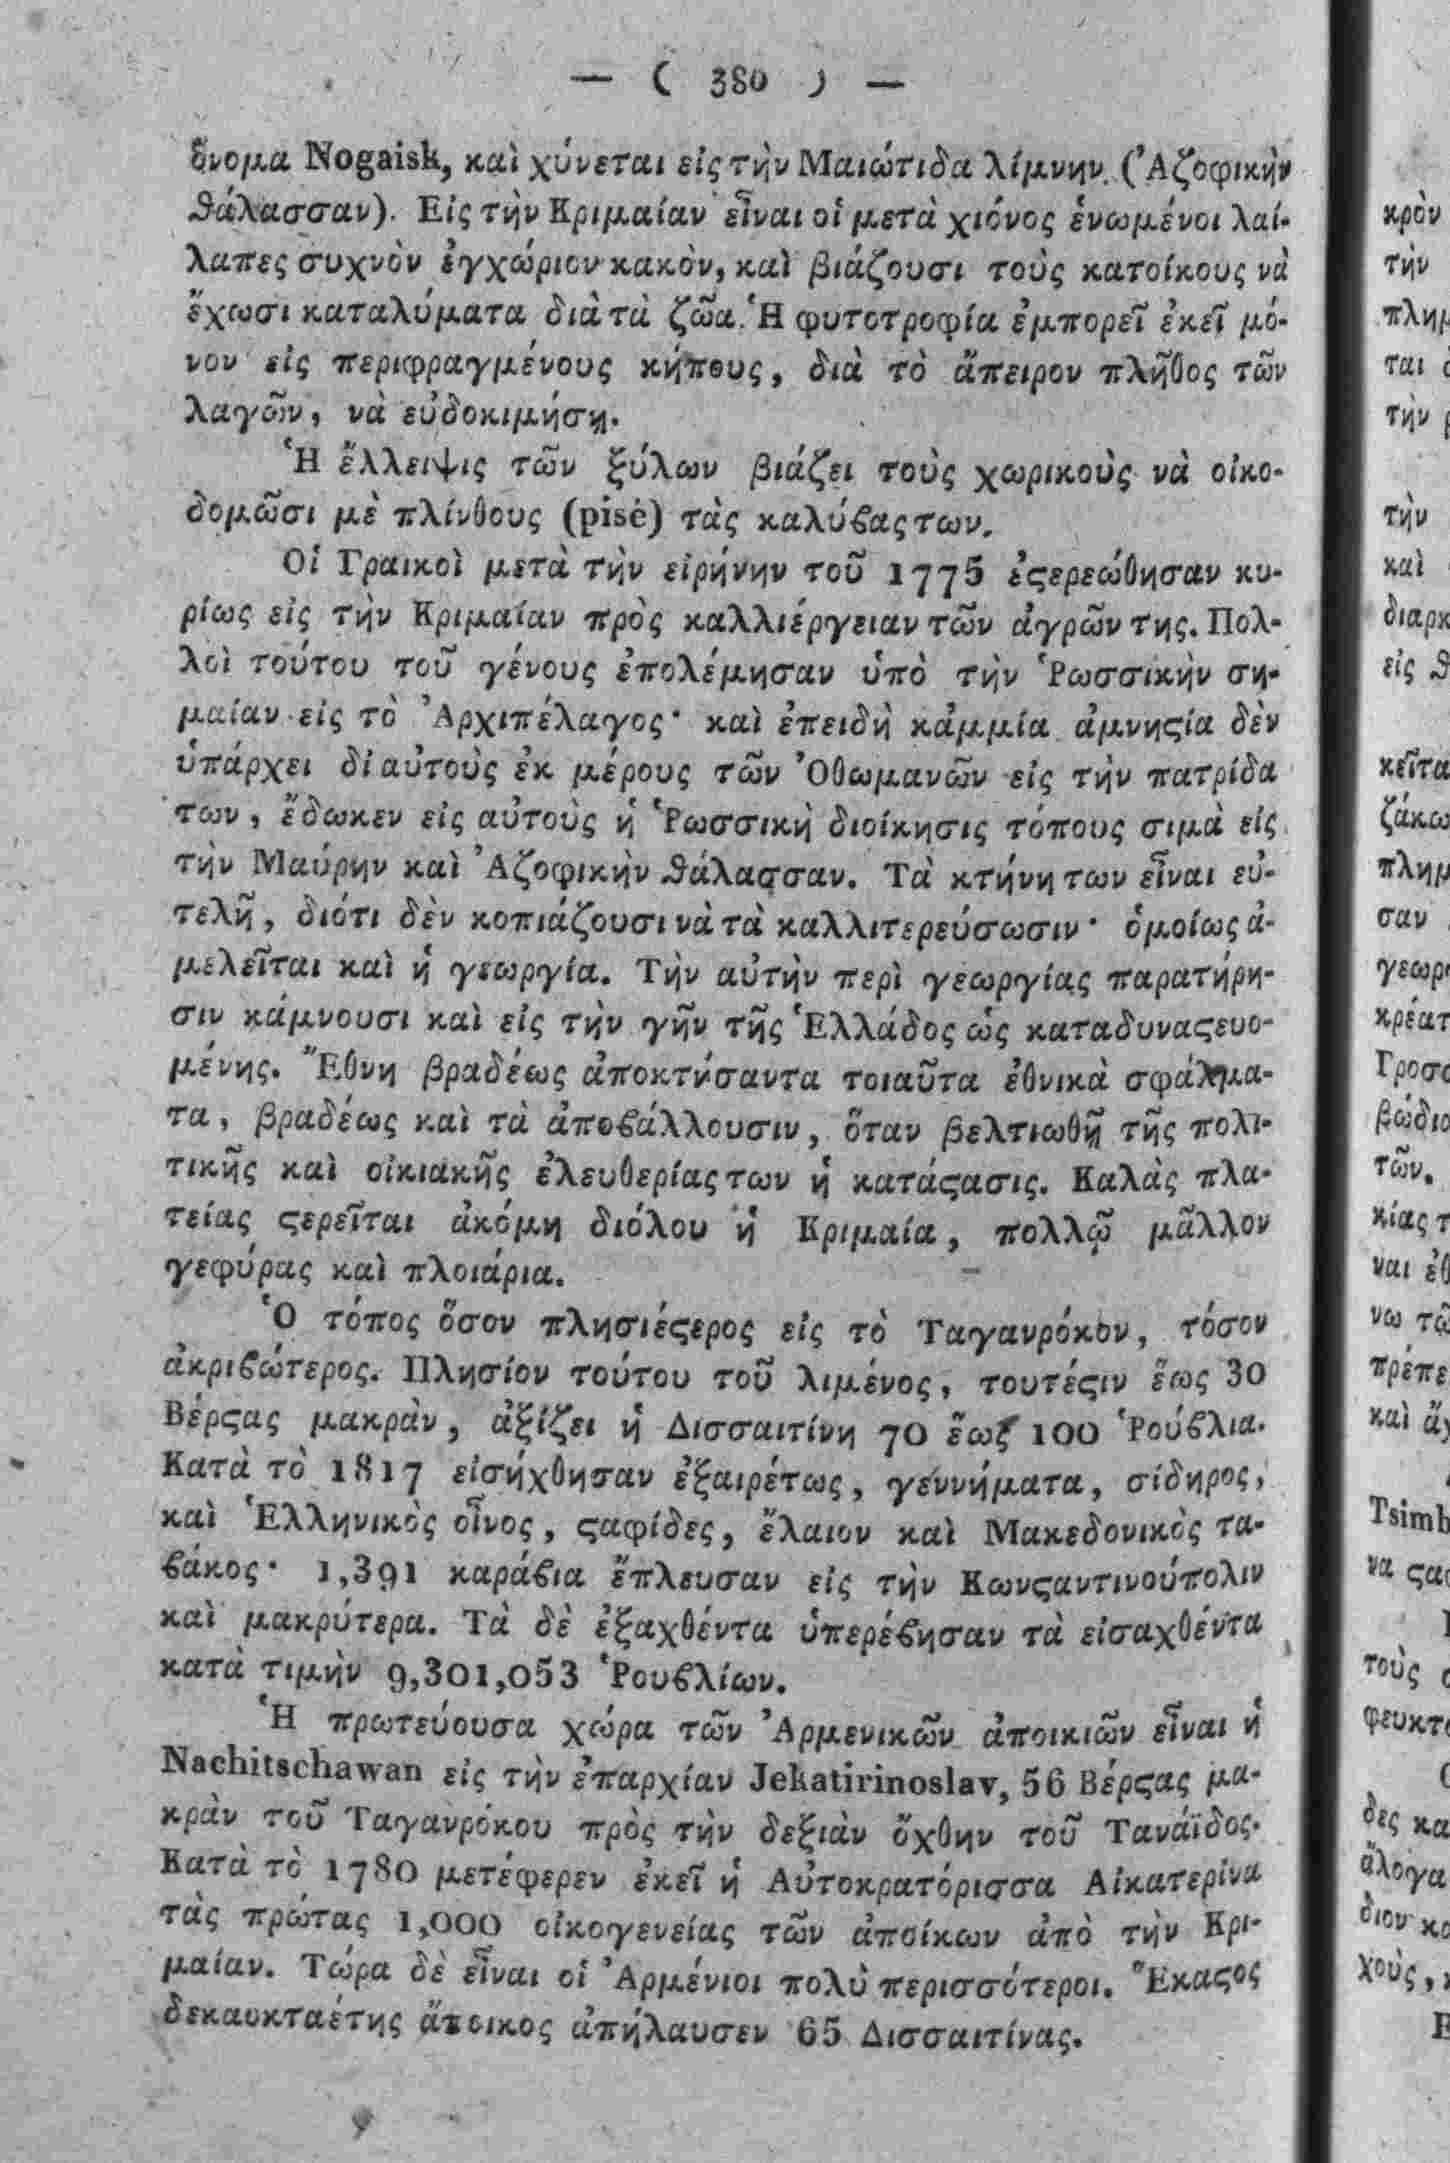 — ( 380 ) —
ὄνομα Nogaisk, καὶ χύνεται εἰς τὴν Μαιώτιδα λίμνην (Ἀζοφικὴν
ϑάλασσαν). Εἰς τὴν Κριμαίαν εἶναι οἱ μετὰ χιόνος ἑνωμένοι λαί-
λαπες συχνὸν ἐγχώριον κακὸν, καὶ βιάζουσι τοὺς κατοίκους νὰ
ἔχωσι καταλύματα διὰ τὰ ζῶα. Ἡ φυτοτροφία ἐμπορεῖ ἐκεῖ μό-
νον εἰς περιφραγμένους κήπους, διὰ τὸ ἄπειρον πλῆθος τῶν
λαγῶν, νὰ εὐδοκιμήσῃ.
Ἡ ἔλλειψις τῶν ξύλων βιάζει τοὺς χωρικοὺς νὰ οἰκο-
δομῶσι μὲ πλίνθους (pisé) τὰς καλύϐας των.
Οἱ Γραικοὶ μετὰ τὴν εἰρήνην τοῦ 1775 ἐϛερεώθησαν κυ-
ρίως εἰς τὴν Κριμαίαν πρὸς καλλιέργειαν τῶν ἀγρῶν της. Πολ-
λοὶ τούτου τοῦ γένους ἐπολέμησαν ὑπὸ τὴν Ῥωσσικὴν ση-
μαίαν εἰς τὸ Ἀρχιπέλαγος· καὶ ἐπειδὴ κἀμμία ἀμνηϛία δὲν
ὑπάρχει δι' αὐτοὺς ἐκ μέρους τῶν Ὀθωμανῶν εἰς τὴν πατρίδα
των, ἔδωκεν εἰς αὐτοὺς ἡ Ῥωσσικὴ διοίκησις τόπους σιμὰ εἰς
τὴν Μαύρην καὶ Ἀζοφικὴν ϑάλασσαν. Τὰ κτήνη των εἶναι εὐ-
τελῆ, διότι δὲν κοπιάζουσι νὰ τὰ καλλιτερεύσωσιν· ὁμοίως ἀ-
μελεῖται καὶ ἡ γεωργία. Τὴν αὐτὴν περὶ γεωργίας παρατήρη-
σιν κάμνουσι καὶ εἰς τὴν γῆν τῆς Ἑλλάδος ὡς καταδυναϛευο-
μένης. Ἔθνη βραδέως ἀποκτήσαντα τοιαῦτα ἐθνικὰ σφάλμα-
τα, βραδέως καὶ τὰ ἀποϐάλλουσιν, ὅταν βελτιωθῇ τῆς πολι-
τικῆς καὶ οἰκιακῆς ἐλευθερίας των ἡ κατάϛασις. Καλὰς πλα-
τείας ϛερεῖται ἀκόμη διόλου ἡ Κριμαία, πολλῷ μᾶλλον
γεφύρας καὶ πλοιάρια.
Ὁ τόπος ὅσον πλησιέϛερος εἰς τὸ Ταγανρόκον, τόσον
ἀκριϐώτερος. Πλησίον τούτου τοῦ λιμένος, τουτέϛιν ἕως 30
Βέρϛας μακρὰν, ἀξίζει ἡ Δισσαιτίνη 70 ἕως 100 Ῥούϐλια.
Κατὰ τὸ 1817 εἰσήχθησαν ἐξαιρέτως, γεννήματα, σίδηρος,
καὶ Ἑλληνικὸς οἶνος, ϛαφίδες, ἔλαιον καὶ Μακεδονικὸς τα-
ϐάκος· 1,391 καράϐια ἔπλευσαν εἰς τὴν Κωνϛαντινούπολιν
καὶ μακρύτερα. Τὰ δὲ ἐξαχθέντα ὑπερέϐησαν τὰ εἰσαχθέντα
κατὰ τιμὴν 9,301,053 Ῥουϐλίων.
Ἡ πρωτεύουσα χώρα τῶν Ἀρμενικῶν ἀποικιῶν εἶναι ἡ
Nachitschawan εἰς τὴν ἐπαρχίαν Jekatirinoslav, 56 Βέρϛας μα-
κρὰν τοῦ Ταγανρόκου πρὸς τὴν δεξιὰν ὄχθην τοῦ Τανάϊδος.
Κατὰ τὸ 1780 μετέφερεν ἐκεῖ ἡ Αὐτοκρατόρισσα Αἰκατερίνα
τὰς πρώτας 1,000 οἰκογενείας τῶν ἀποίκων ἀπὸ τὴν Κρι-
μαίαν. Τώρα δὲ εἶναι οἱ Ἀρμένιοι πολὺ περισσότεροι. Ἕκαϛος
δεκαοκταέτης ἄποικος ἀπήλαυσεν 65 Δισσαιτίνας.
κρὸν
τὴν
ται
τὴν
τὴν
καὶ
εἰς
σαν
τῶν.
καὶ
τοὺς